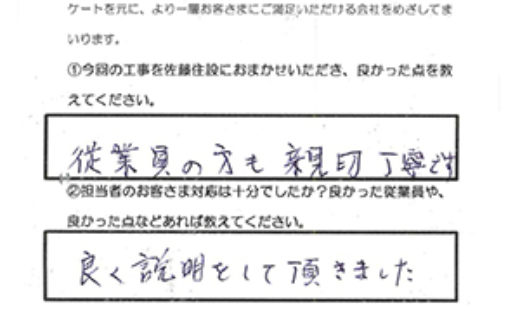 ケートを元に、より一層お客さまにご満足いただける会社をめざしてま
いります。
①今回の工事を佐藤住設におまかせいただき、良かった点を教
えてください。
従業員の方も親切丁寧です
②担当者のお客さま対応は十分でしたか？良かった従業員や、
良かった点などあれば教えてください。
良く説明をして頂きました